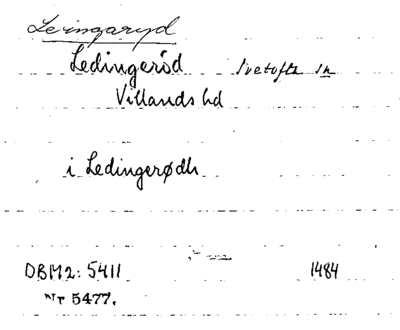 Levingaryd
Ledingeröd Ivetofta sn
Villands hd
i Ledingerødh
DBM2: 5411 1484
Nr 5477.